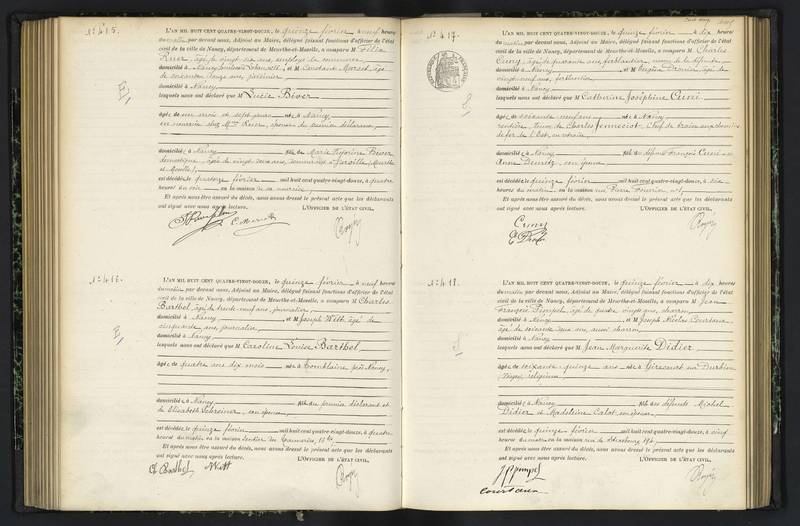 N° 415.
L'AN MIL HUIT CENT QUATRE-VINGT-DOUZE, le quinze février à neuf heures
du matin, par devant nous, Adjoint au Maire, délégué faisant fonctions d'officier de l'état
civil de la ville de Nancy, département de Meurthe-et-Moselle, a comparu M Félix
âgé de vingt six ans, employé de commerce
domicilié à Nancy et M Constant
de soixante douze ans,
domicilié à Nancy
lesquels nous ont déclaré que M Lucie Biver
âgée de un mois et sept jours née à Nancy
en nourrice chez Mme épouse du premier déclarant,
domiciliée à Nancy fille de Marie Biver
domestique, âgée de vingt ans, domiciliée à Jarville (Meurthe
et Moselle)
est décédée le quatorze février mil huit cent quatre-vingt-douze, à quatre
heures du soir en la maison de sa nourrice,
Et après nous être assuré du décès, nous avons dressé le présent acte que les déclarants
ont signé avec nous après lecture. L'OFFICIER DE L'ÉTAT CIVIL,
N° 416.
E,
L'AN MIL HUIT CENT QUATRE-VINGT-DOUZE, le quinze février à neuf heures
du matin, par devant nous, Adjoint au Maire, délégué faisant fonctions d'officier de l'état
civil de la ville de Nancy, département de Meurthe-et-Moselle, a comparu M Charles
Barthel, âgé de trente neuf ans, journalier
domicilié à Nancy, et M Joseph Witt, âgé de
cinquante ans, journalier
domicilié à Nancy
lesquels nous ont déclaré que M Caroline Louise Barthel
âgée de quatre ans dix mois née à Tomblaine près Nancy,
domiciliée à Nancy fille du premier déclarant et
de Elisabeth Schreiner, son épouse,
est décédée le quinze février mil huit cent quatre-vingt-douze, à quatre
heures du matin en la maison sentier
Et après nous être assuré du décès, nous avons dressé le présent acte que les déclarants
ont signé avec nous après lecture. L'OFFICIER DE L'ÉTAT CIVIL,
Ch Barthel Witt
N° 417.
L'AN MIL HUIT CENT QUATRE-VINGT-DOUZE, le quinze février à dix heures
du matin, par devant nous, Adjoint au Maire, délégué faisant fonctions d'officier de l'état
civil de la ville de Nancy, département de Meurthe-et-Moselle, a comparu M Charles
Cuny, âgé de quarante ans, ferblantier, neveu de la défunte
domicilié à Nancy et M Eugène âgé de
vingt neuf ans, ferblantier
domicilié à Nancy
lesquels nous ont déclaré que M Catherine Joséphine Cuni
âgée de soixante neuf ans née à Nancy
rentière, veuve de Charles chef de train aux chemins
de fer de l'Est, en retraite,
domiciliée à Nancy fille des défunts François Cuni et
Anne son épouse
est décédée le quinze février mil huit cent quatre-vingt-douze, à six
heures du matin, en la maison rue Pierre Fourier
Et après nous être assuré du décès, nous avons dressé le présent acte que les déclarants
ont signé avec nous après lecture. L'OFFICIER DE L'ÉTAT CIVIL,
Cuny
N° 418.
L'AN MIL HUIT CENT QUATRE-VINGT-DOUZE, le quinze février à dix heures
du matin, par devant nous, Adjoint au Maire, délégué faisant fonctions d'officier de l'état
civil de la ville de Nancy, département de Meurthe-et-Moselle, a comparu M Jean
François Pimpel, âgé de quatre vingts ans, charron
domicilié à Nancy et M Joseph Nicolas Courtaux,
âgé de soixante dix ans, aussi charron
domicilié à Nancy
lesquels nous ont déclaré que M Jeanne Marguerite Didier
âgée de soixante quinze ans née à Girecourt sur Durbion
(Vosges), religieuse
domiciliée à Nancy fille des défunts Michel
Didier et Madeleine Calot, son épouse,
est décédée le quinze février mil huit cent quatre-vingt-douze, à neuf
heures du matin en la maison rue de Strasbourg
Et après nous être assuré du décès, nous avons dressé le présent acte que les déclarants
ont signé avec nous après lecture. L'OFFICIER DE L'ÉTAT CIVIL,